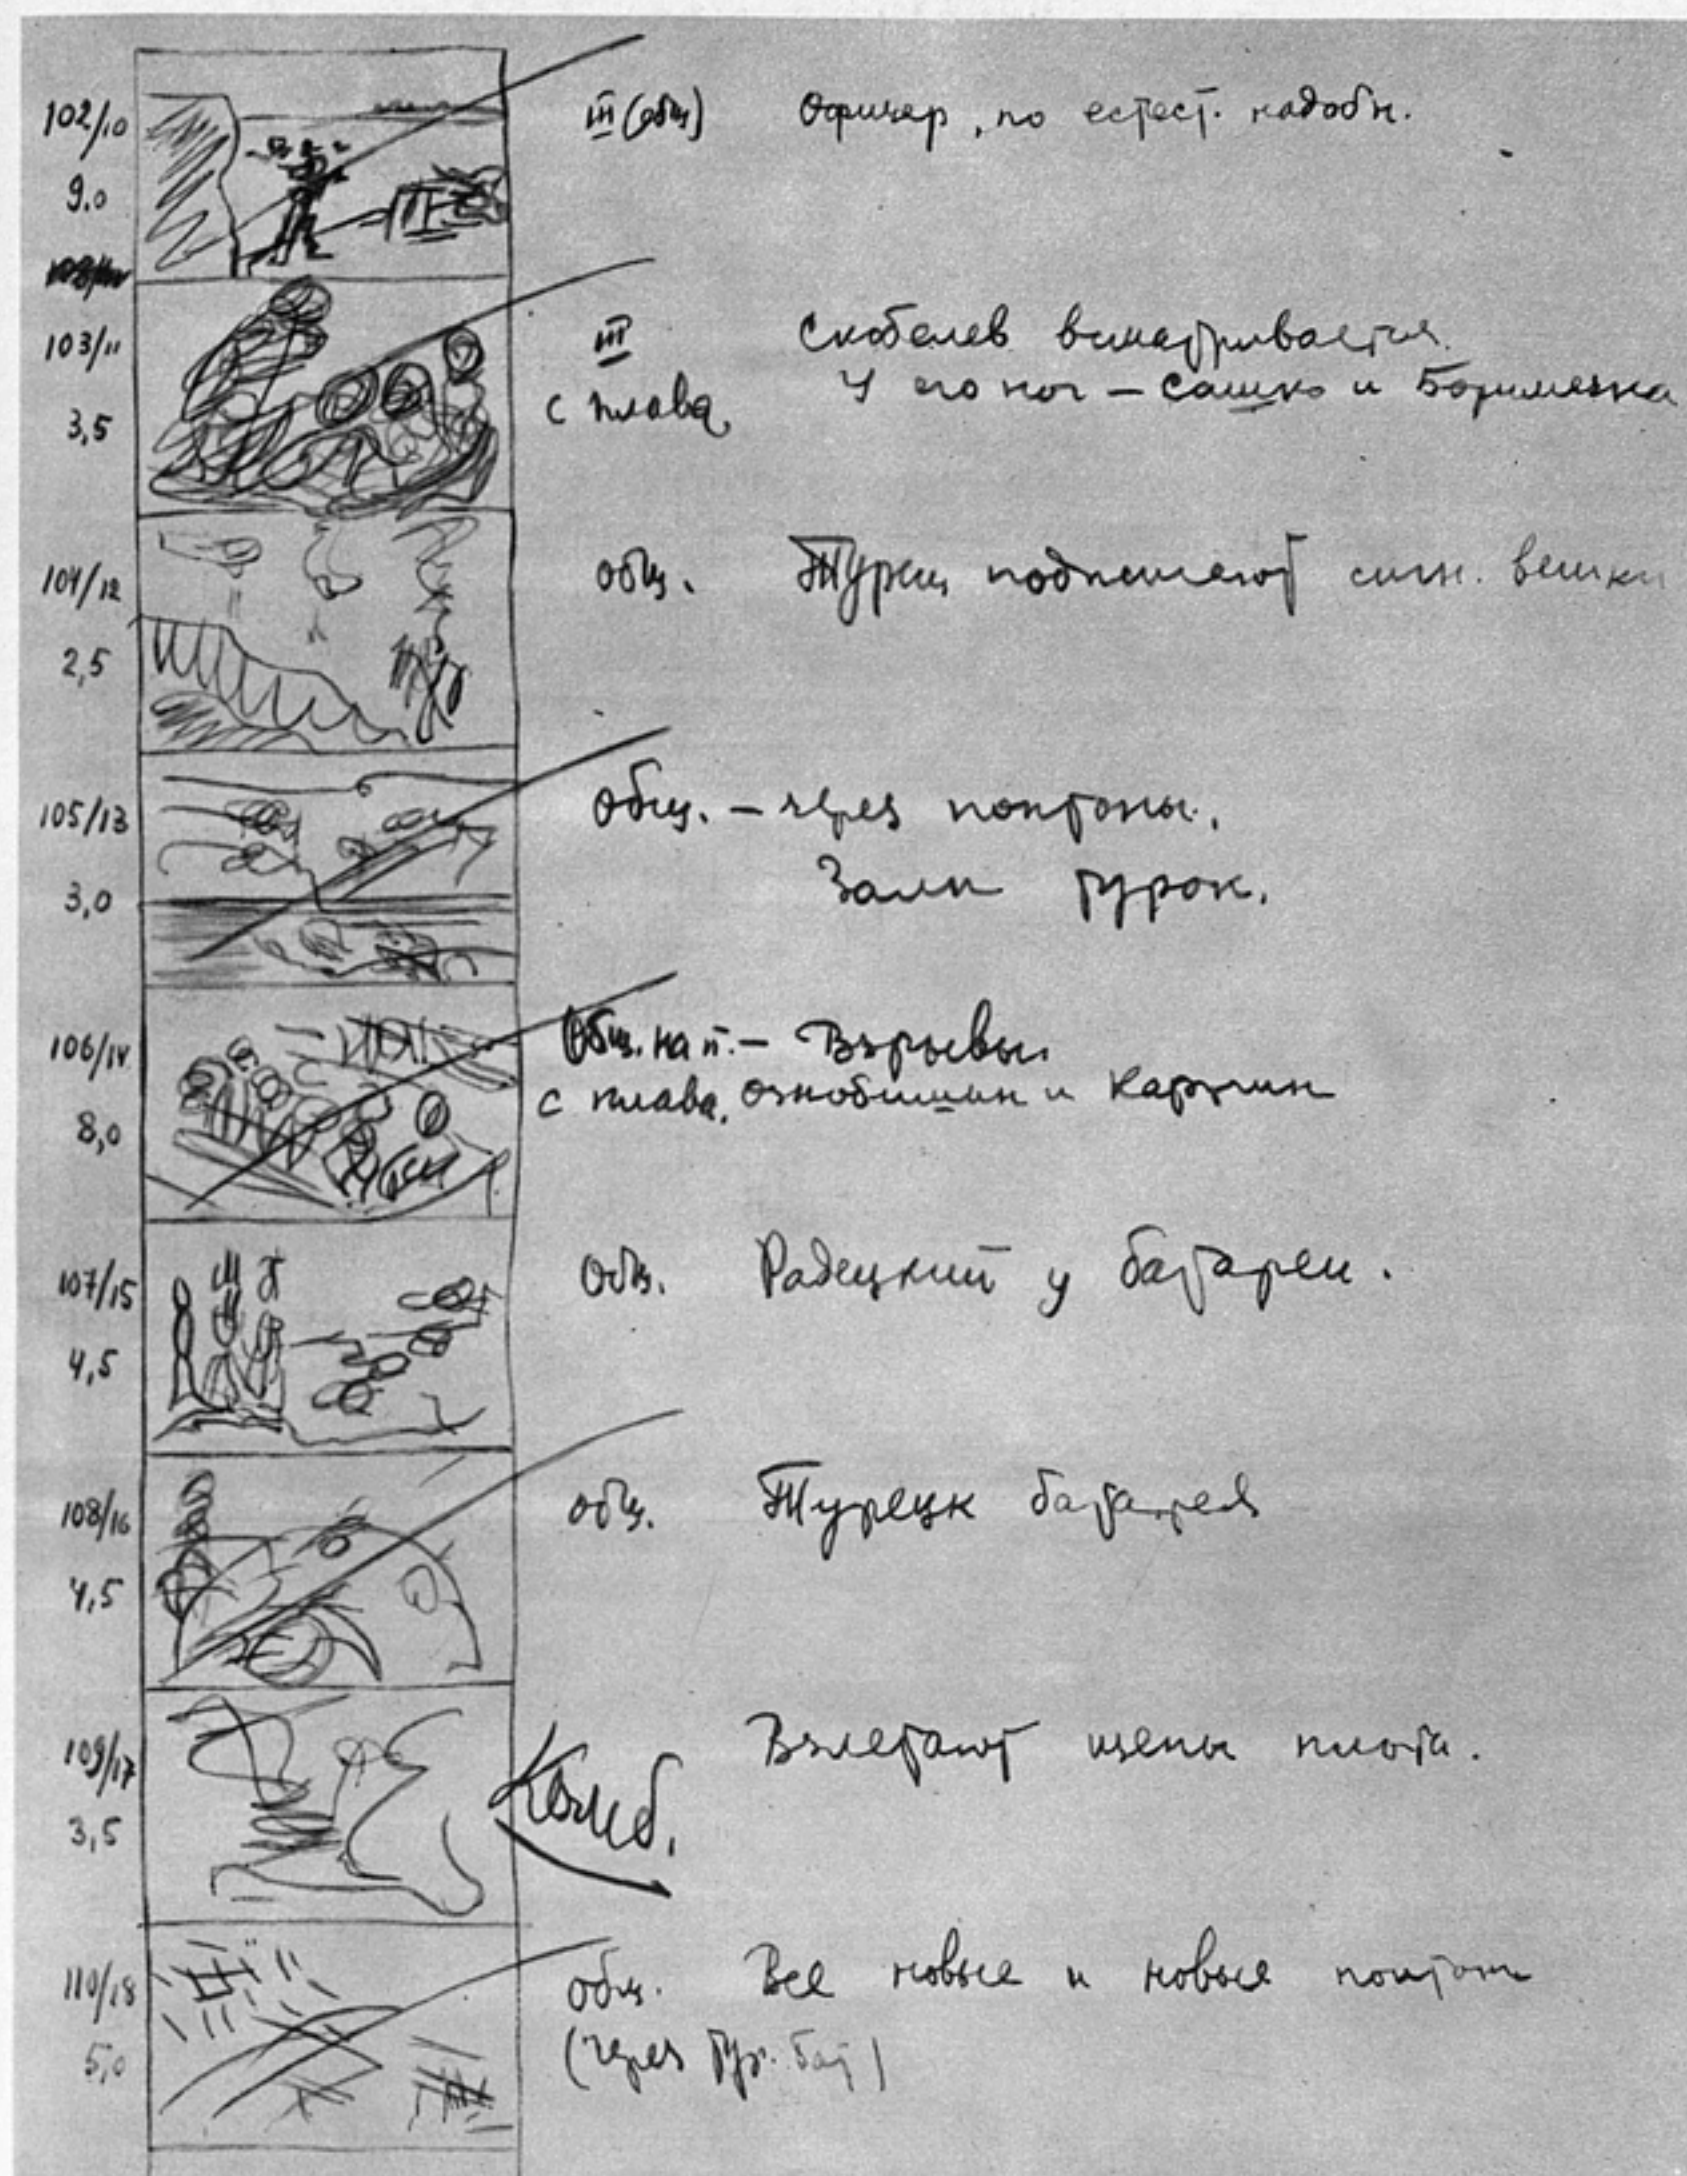 102/10
9.0
III (общ) Офицер, по естест. надобн.
103/11
3,5
III Скобелев всматривается.
с плава. У его ног – Сашко и Боримечка
104/12
2,5
общ. Турки поджигают сигн. вешки
105/13
3,0
общ. – через понтоны.
Залп турок.
106/14
8,0
Общ. на п. – Взрывы.
с плава. Ознобишин и Каргин
107/15
4,5
Общ. Радецкий у батареи.
108/16
4,5
общ. Турецк батарея
109/17
3,5
Комб.
Взлетают щепы плота.
110/18
5,0
общ. Все новые и новые понтоны
(через тур. бат)